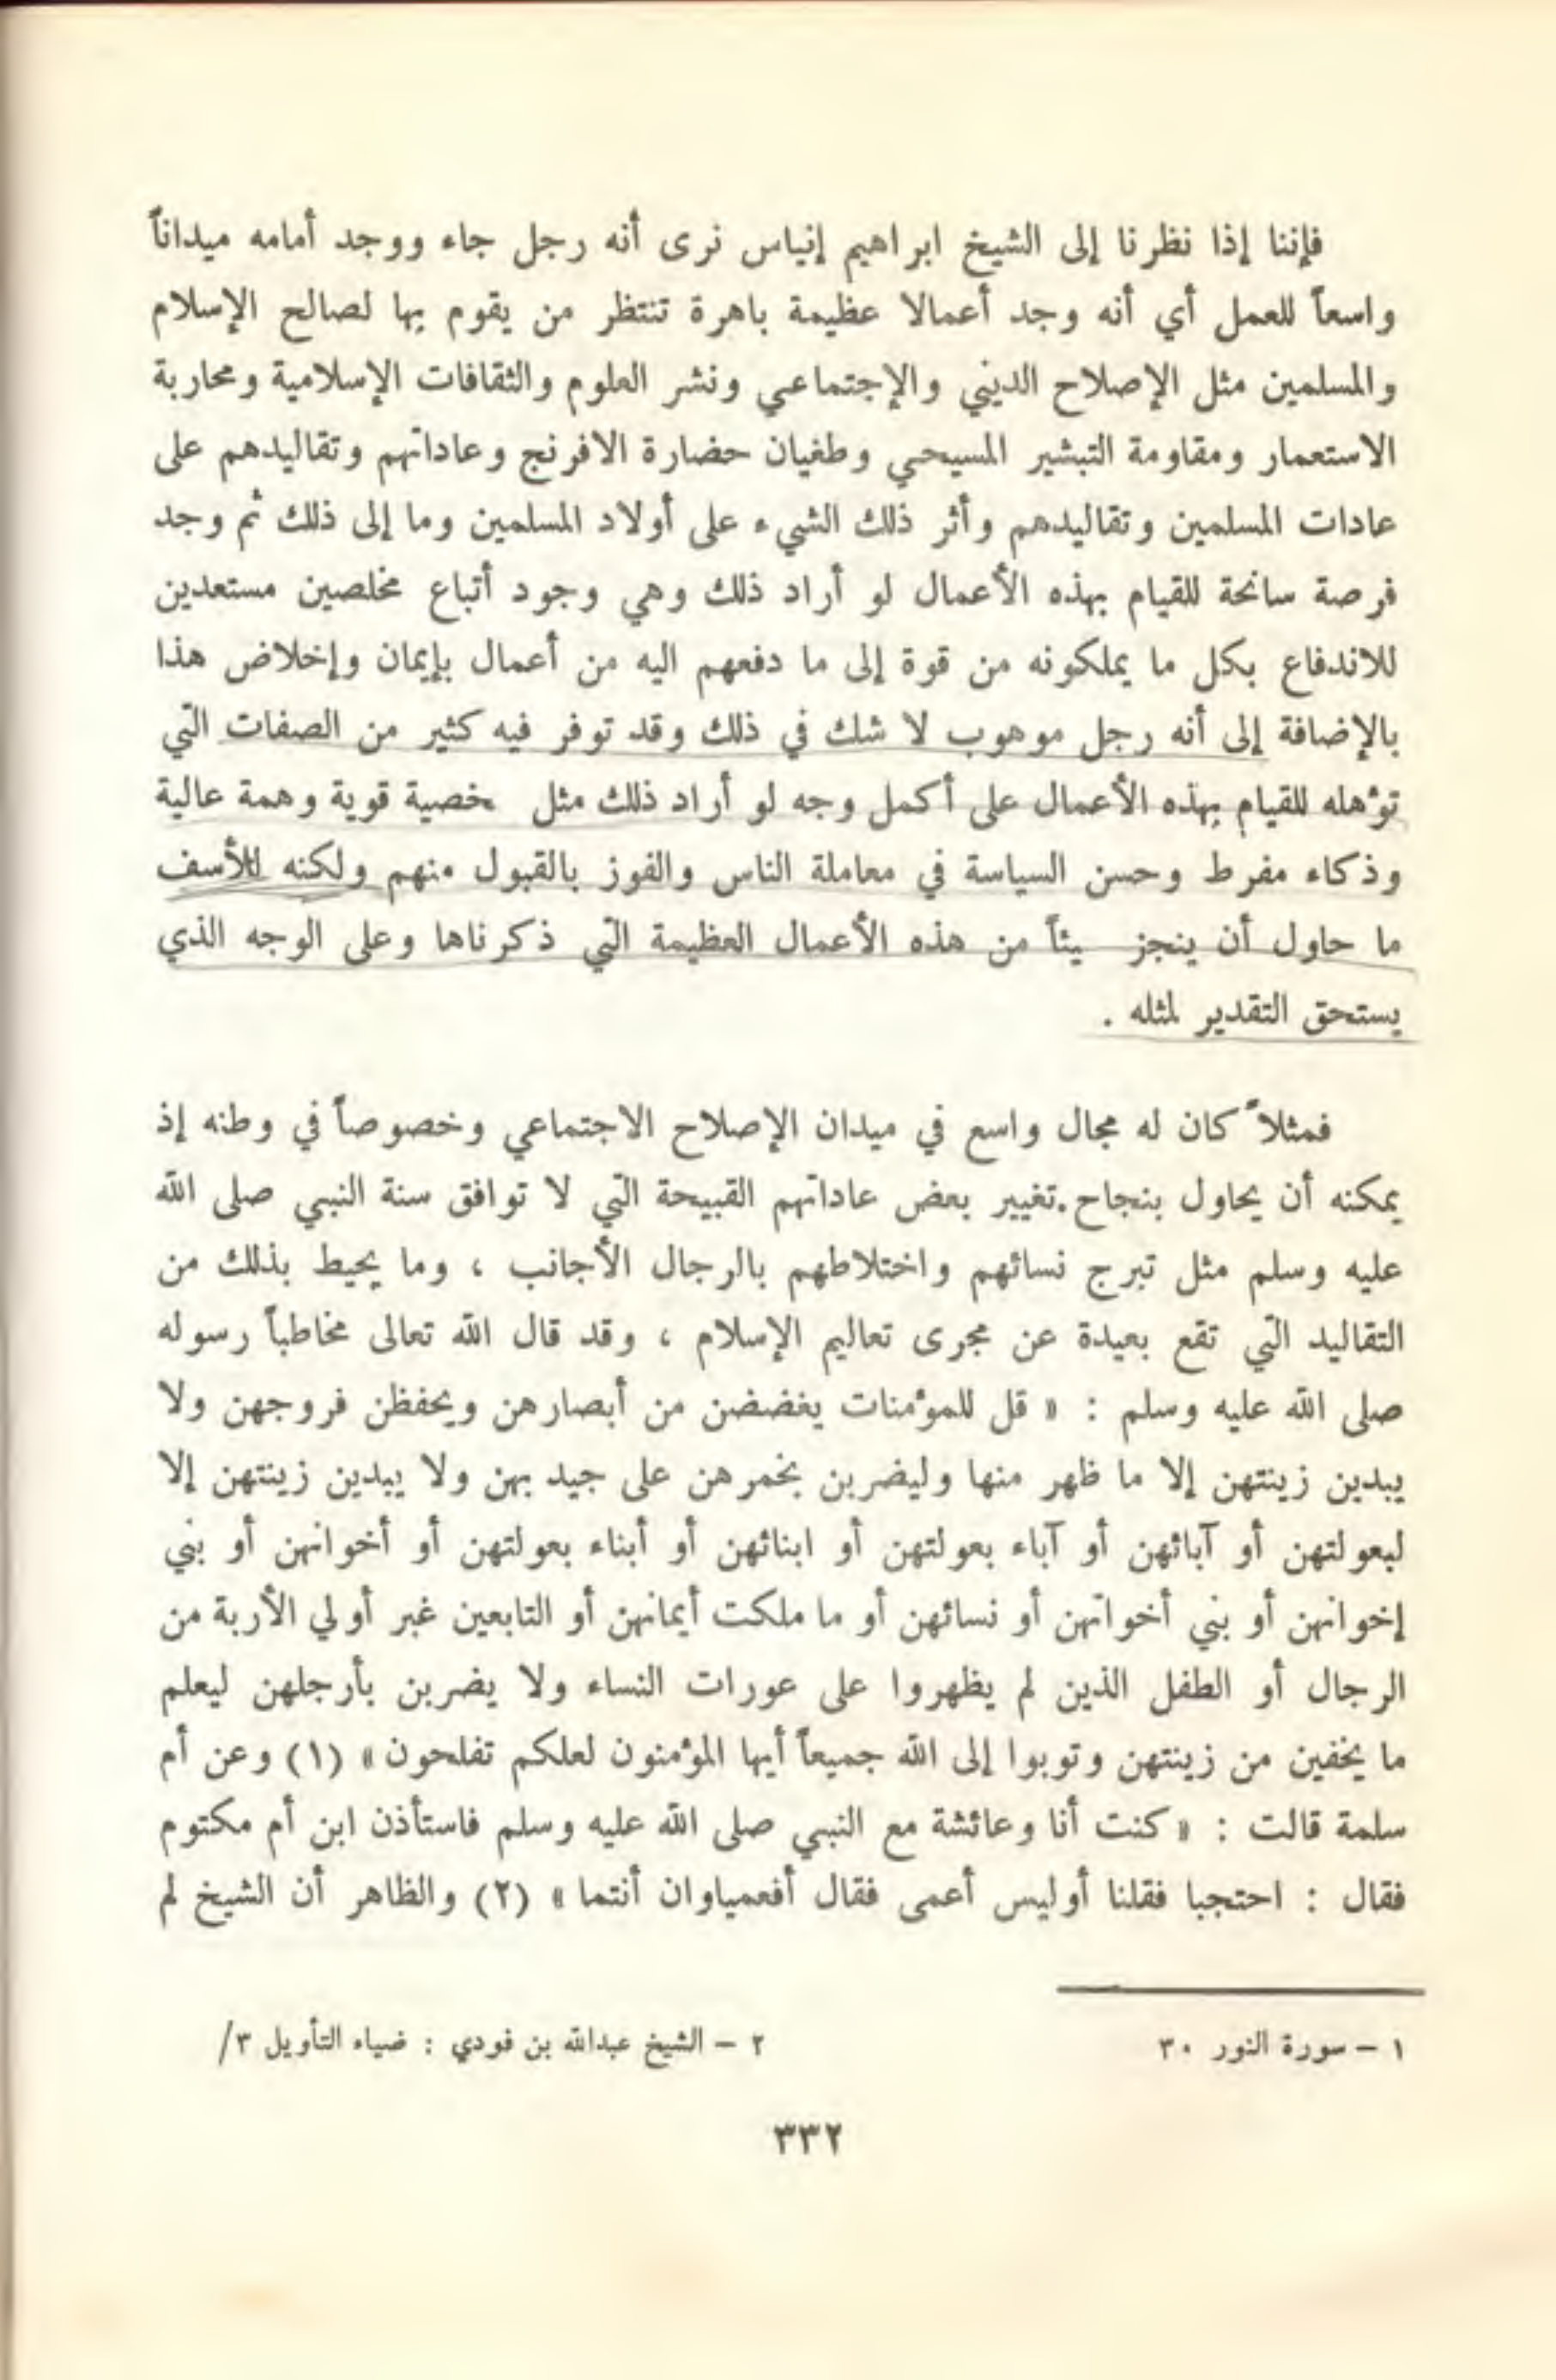 فإننا إذا نظرنا إلى الشيخ ابراهيم إنياس نرى أنه رجل جاء ووجد أمامه ميداناً
واسعاً للعمل أي أنه وجد أعمالا عظيمة باهرة تنتظر من يقوم بها لصالح الإسلام
والمسلمين مثل الإصلاح الديني والإجتماعي ونشر العلوم والثقافات الإسلامية ومحاربة
الاستعمار ومقاومة التبشير المسيحي وطغيان حضارة الافرنج وعاداتهم وتقاليدهم على
عادات المسلمين وتقاليدهم وأثر ذلك الشيء على أولاد المسلمين وما إلى ذلك ثم وجد
فرصة سانحة للقيام بهذه الأعمال لو أراد ذلك وهي وجود أتباع مخلصين مستعدين
للاندفاع بكل ما يملكونه من قوة إلى ما دفعهم اليه من أعمال بإيمان وإخلاض هذا
بالإضافة إلى أنه رجل موهوب لا شك في ذلك وقد توفر فيه كثير من الصفات التي
تؤهله للقيام بهذه الأعمال على أكمل وجه لو أراد ذلك مثل خصية قوية وهمة عالية
وذكاء مفرط وحسن السياسة في معاملة الناس والفوز بالقبول منهم ولكنه للأسف
ما حاول أن ينجز يئاً من هذه الأعمال العظيمة التي ذكرناها وعلى الوجه الذي
يستحق التقدير لمثله .
فمثلاً كان له مجال واسع في ميدان الإصلاح الاجتماعي وخصوصاً في وطنه إذ
يمكنه أن يحاول بنجاح.تغيير بعض عاداتهم القبيحة التي لا توافق سنة النبي صلى الله
عليه وسلم مثل تبرج نسائهم واختلاطهم بالرجال الأجانب ، وما يحيط بذلك من
التقاليد التي تقع بعيدة عن مجرى تعاليم الإسلام ، وقد قال الله تعالى مخاطباً رسوله
صلى الله عليه وسلم : « قل للمؤمنات يغضضن من أبصارهن ويحفظن فروجهن ولا
يبدين زينتهن إلا ما ظهر منها وليضربن بخمرهن على جيد بهن ولا يبدين زينتهن إلا
لبعولتهن أو آبائهن أو آباء بعولتهن أو ابنائهن أو أبناء بعولتهن أو أخوانهن أو بني
إخوانهن أو بني أخواتهن أو نسائهن أو ما ملكت أيمانهن أو التابعين غبر أولي الأربة من
الرجال أو الطفل الذين لم يظهروا على عورات النساء ولا يضربن بأرجلهن ليعلم
ما يخفين من زينتهن وتوبوا إلى الله جميعاً أيها المؤمنون لعلكم تفلحون » (١) وعن أم
سلمة قالت : « كنت أنا وعائشة مع النبي صلى الله عليه وسلم فاستأذن ابن أم مكتوم
فقال : احتجبا فقلنا أوليس أعمى فقال أفعمياوان أنتما » (٢) والظاهر أن الشيخ لم
١ – سورة النور ٣٠
٢ – الشيخ عبدالله بن فودي : ضياء التأويل ٣/
٣٣٢